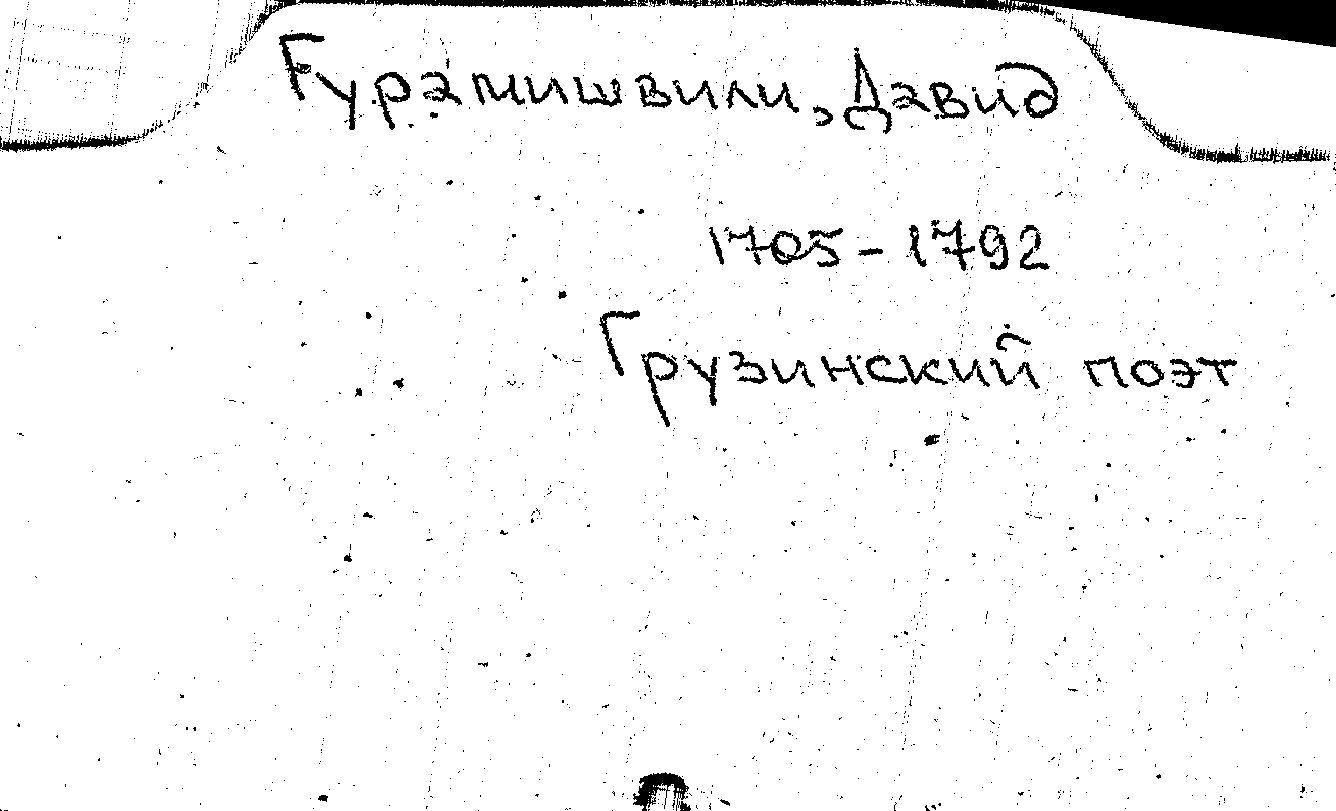 Гурамишвили, Давид
1705 - 1792
Грузинский поэт